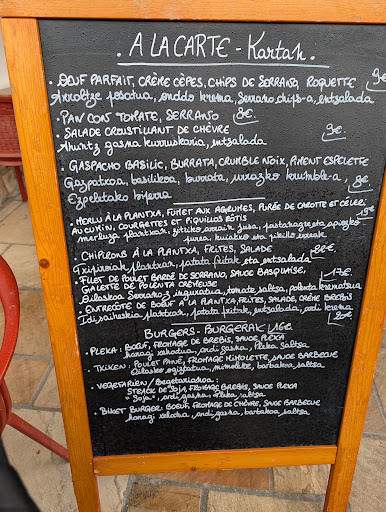 . A LA CARTE - Kartak .
. OEUF PARFAIT, CRÈME CÈPES, CHIPS DE SERRANO, ROQUETTE 9€
Arroltze posatua, onddo krema, Serrano chips-a, entsalada
. PAN CON TOMATE, SERRANO 8€.
. SALADE CROUSTILLANT DE CHÈVRE
Ahuntz gasna kurruskaria, entsalada 9€.
. GASPACHO BASILIC, BURRATA, CRUMBLE NOIX, PIMENT ESPELETTE
Gazpatxoa, basilikoa, burrata, urrazko krumble-a,
Ezpeletako biperra 9€
. MERLU À LA PLANTXA, FUMET AUX AGRUMES, PURÉE DE CAROTTE ET CÉLERI
AU CUMIN, COURGETTES ET PIQUILLOS RÔTIS
merluza plantxan, zitriko arrain jusa,
. CHIPIRONS À LA PLANTXA, FRITES, SALADE
Txipiroiak plantxan, patata fritak eta entsalada
. FILET DE POULET BARDÉ DE SERRANO, SAUCE BASQUAISE, 17€
GALETTE DE POLENTA CRÉMEUSE
Oilaskoa Serrano-z inguratua, tomate saltsa, polenta krematsua
. ENTRECÔTE DE BOEUF À LA PLANTXA, FRITES, SALADE, CRÈME BREBIS
Idi saiheskia plantxan, patata fritak, entsalada, ardi krema 20€
BURGERS - BURGERAK 16€
. PLEKA : BOEUF, FROMAGE DE BREBIS, SAUCE PLEKA
haragi xehatua, ardi gasna, Pleka saltsa
. TKIKEN : POULET PANÉ, FROMAGE MIMOLETTE, SAUCE BARBECUE
Oilasko ogiztatua, mimolette, barbakoa saltsa
. VEGETARIEN / Begetarianoa :
STEACK DE SOJA, FROMAGE BREBIS, SAUCE PLEKA
"Soja", ardi gasna, Pleka saltsa
. BURGER: BOEUF, FROMAGE DE CHÈVRE, SAUCE BARBECUE
haragi xehatua, ardi gasna, barbakoa saltsa